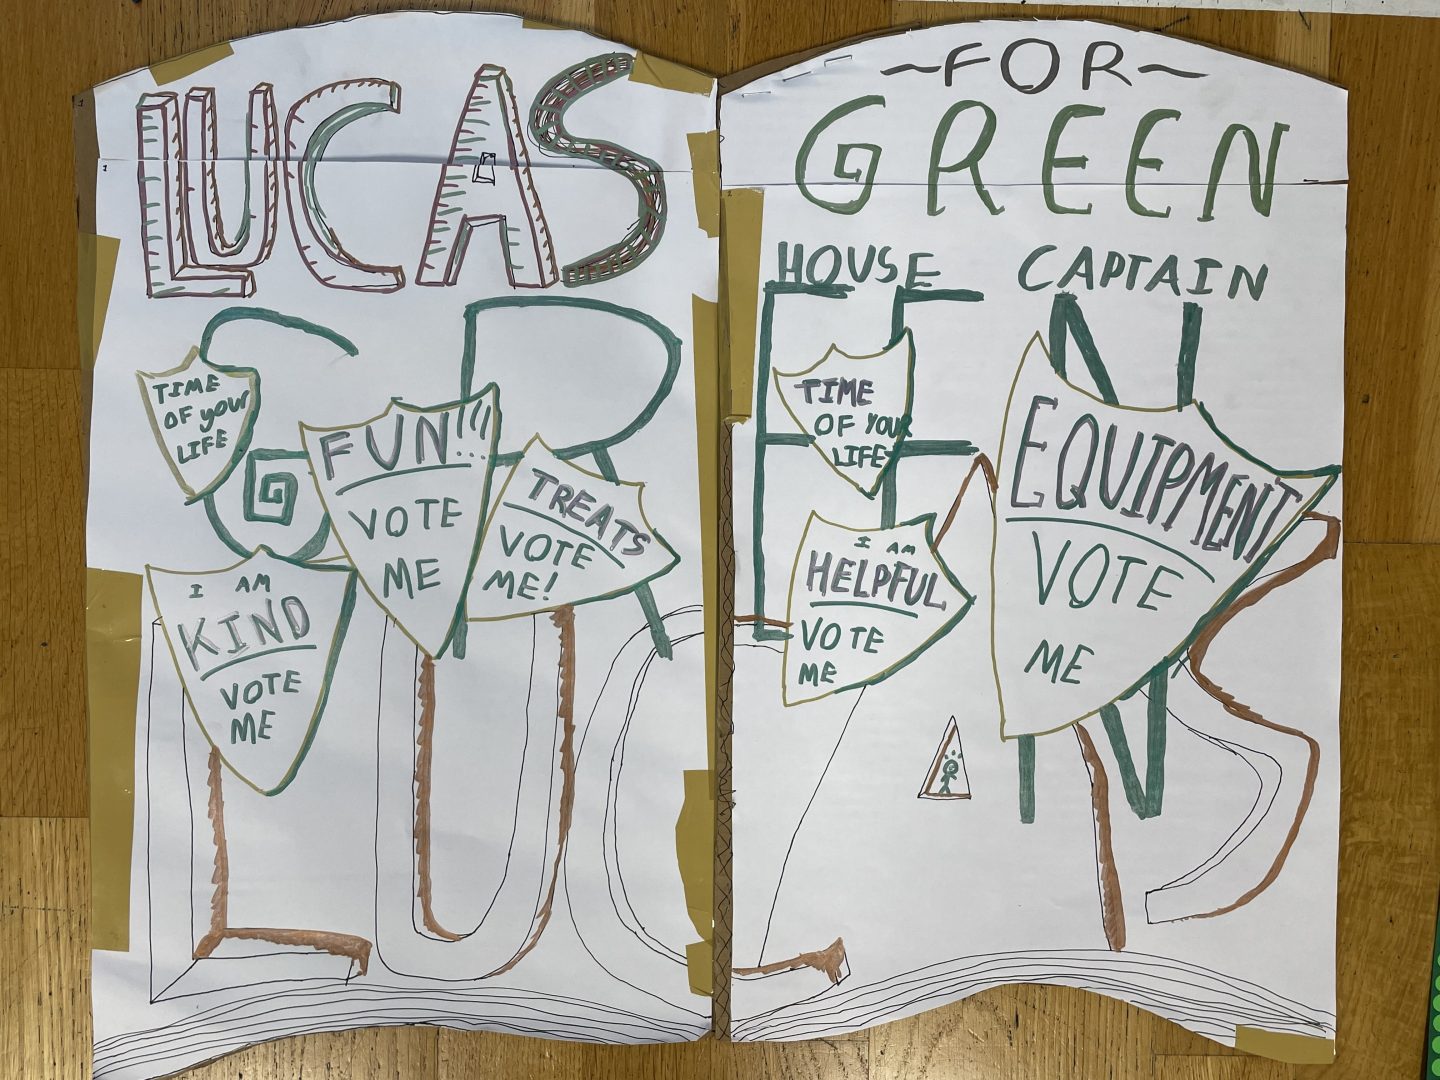 LUCAS
~FOR~
GREEN
HOUSE CAPTAIN
GREEN
TIME
OF your
LIFE
FUN!!!
VOTE
ME
TREATS
VOTE
ME!
I AM
KIND
VOTE
ME
TIME
OF YOUR
LIFE
I AM
HELPFUL
VOTE
ME
EQUIPMENT
VOTE
ME
LUCAS